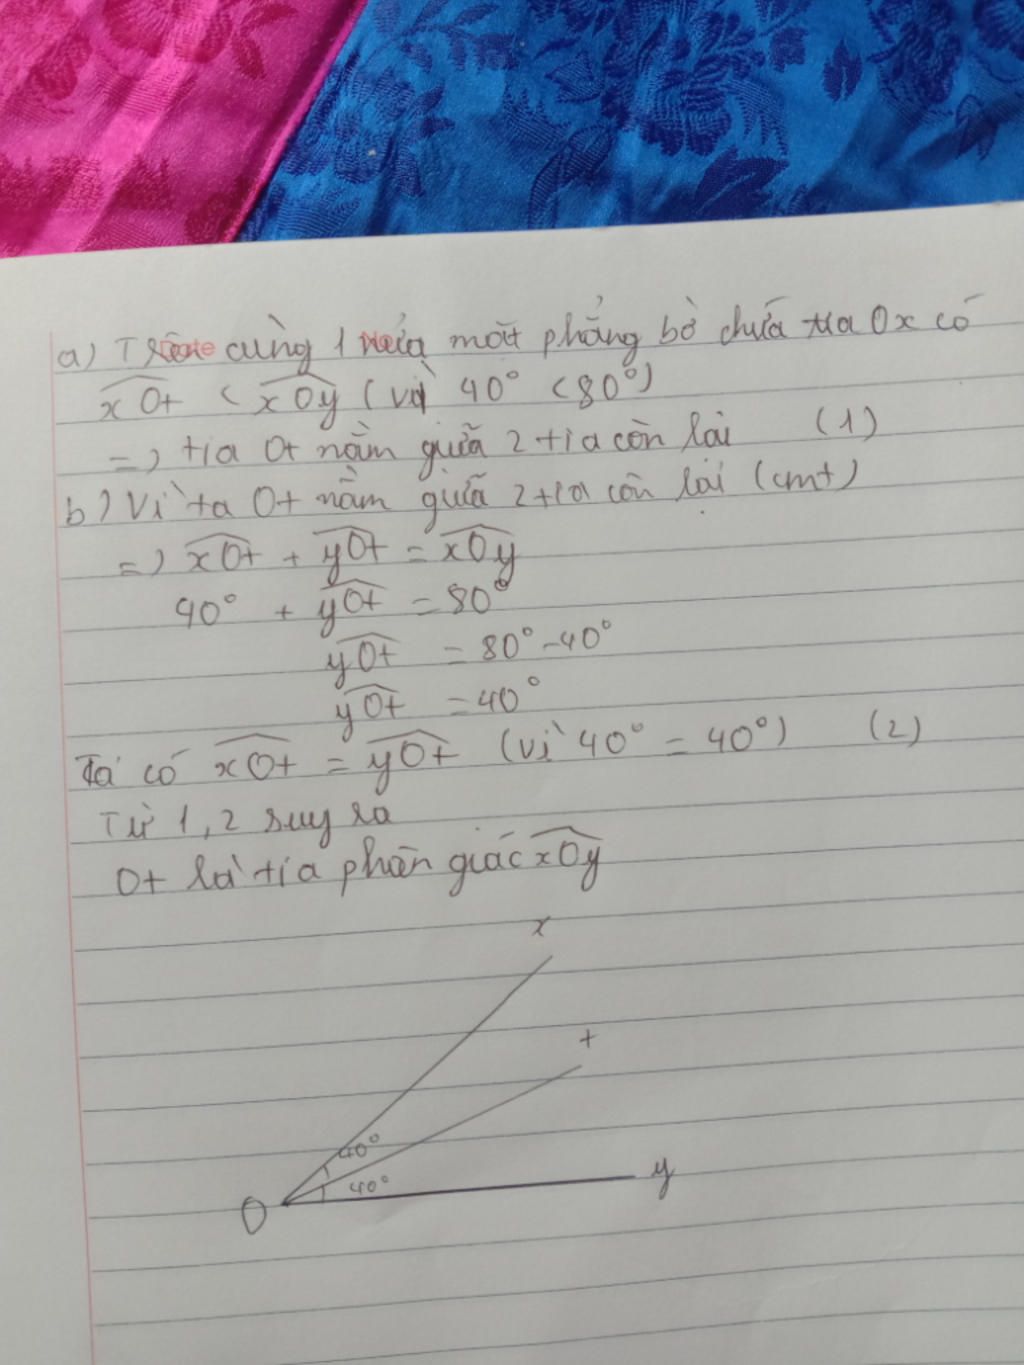 a) Trên cùng 1 nửa mặt phẳng bờ chứa tia Ox có
xOt < xOy (vì 40° < 80°)
=) tia Ot nằm giữa 2 tia còn lại (1)
b) Vì ta Ot nằm giữa 2 tia còn lại (cmt)
=) xOt + yOt = xOy
40° + yOt = 80°
yOt = 80° - 40°
yOt = 40°
Ta có xOt = yOt (vì 40° = 40°) (2)
Từ 1, 2 suy ra
Ot là tia phân giác xOy
x
t
40°
40°
y
O